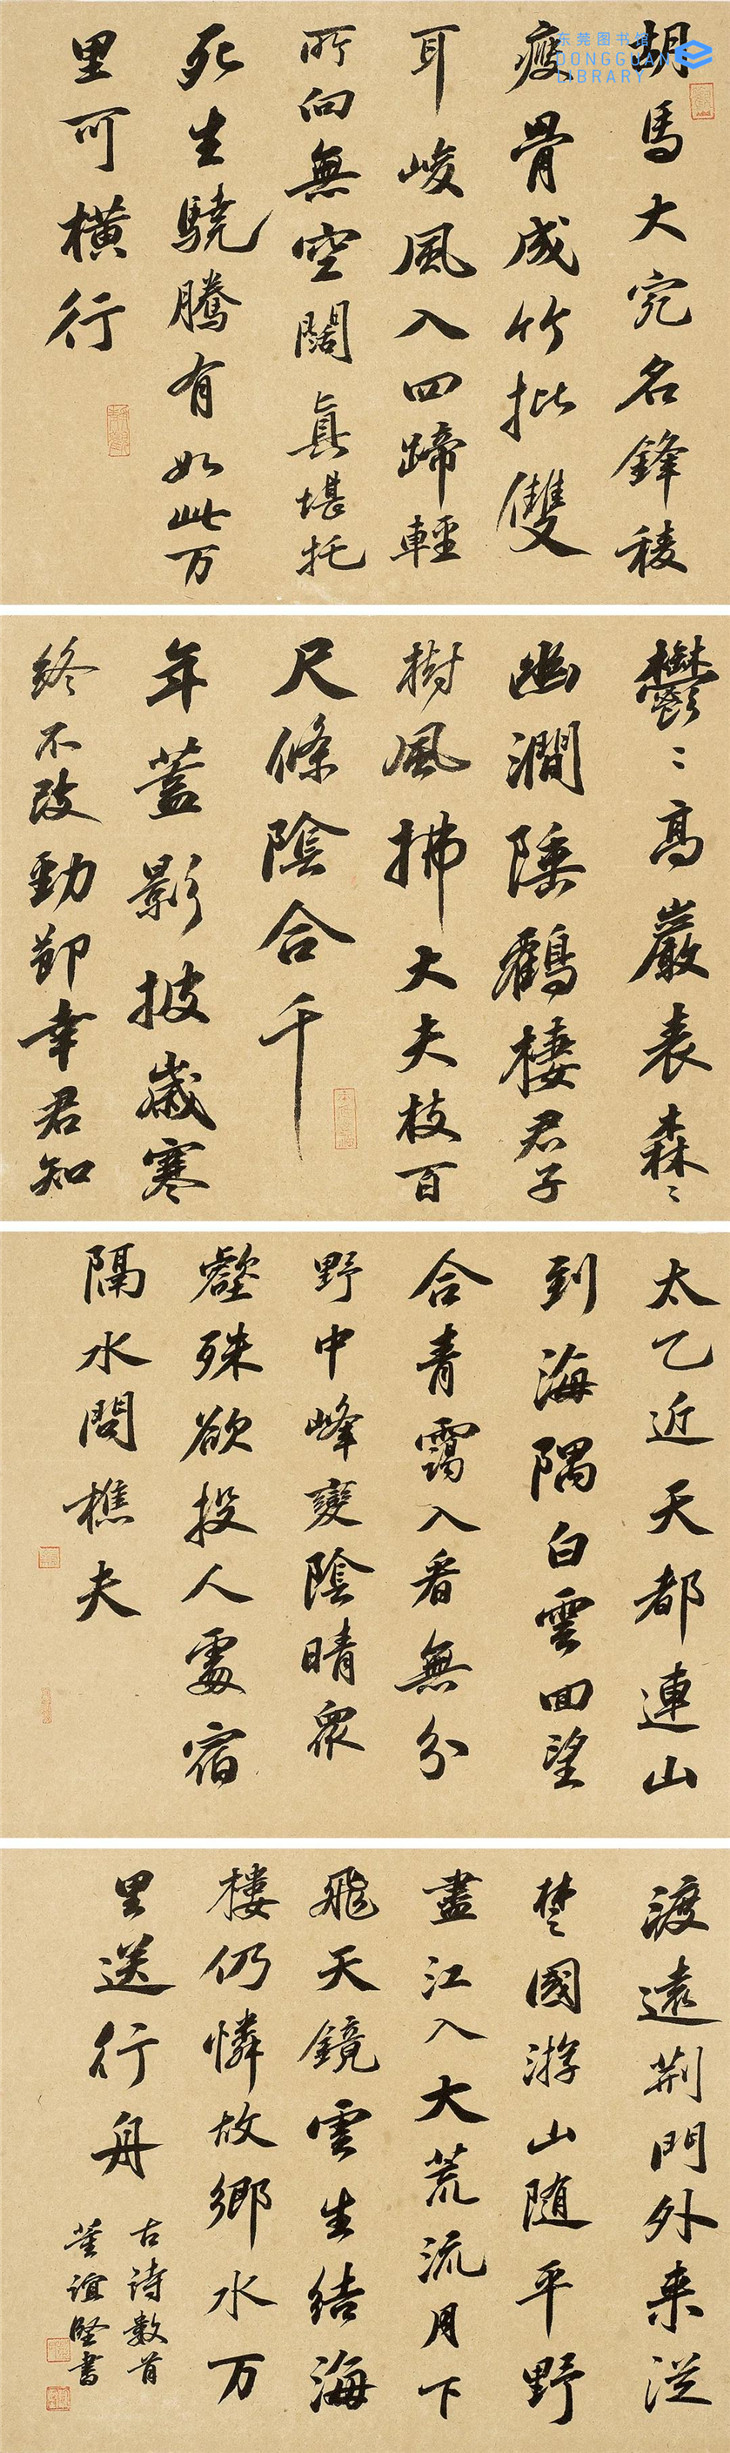 东莞图书馆
DONGGUAN
LIBRARY
胡馬大宛名鋒稜
瘦骨成竹批雙
耳峻風入四蹄輕
所向無空闊真堪托
死生驍騰有如此万
里可橫行
鬱〻高巖表森〻
幽澗陲鶴棲君子
樹風拂大夫枝百
尺條陰合千
年蓋影披歲寒
終不改勁節幸君知
太乙近天都連山
到海隅白雲回望
合青靄入看無分
野中峰變陰晴眾
壑殊欲投人處宿
隔水問樵夫
渡遠荊門外來從
楚國游山随平野
盡江入大荒流月下
飛天鏡雲生結海
樓仍憐故鄉水万
里送行舟
古詩數首
董誼堅書